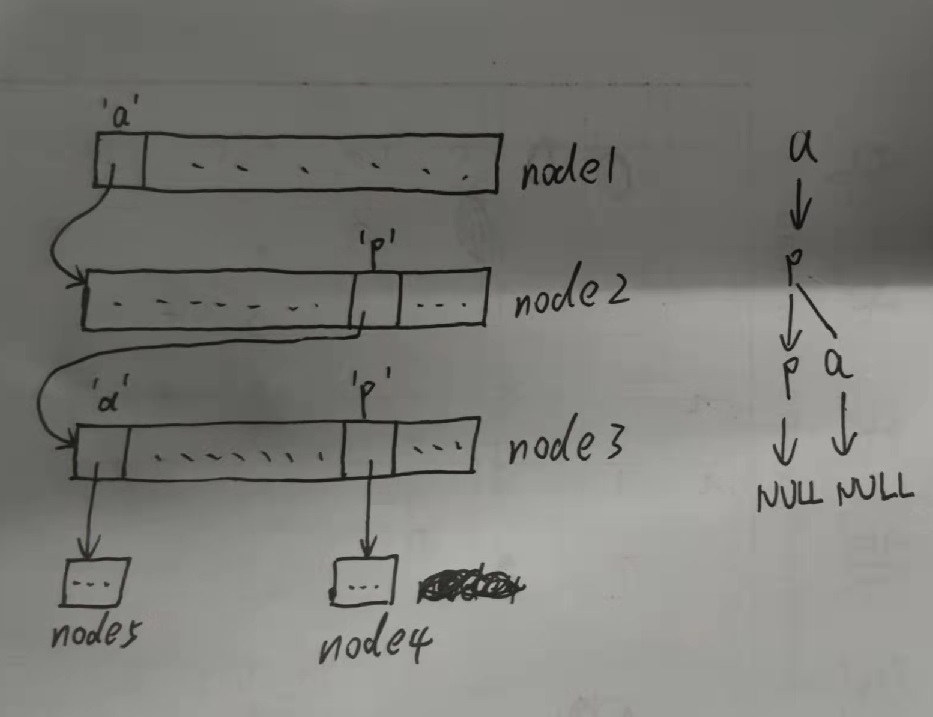 'a'
node1
'p'
node2
'a'
'p'
node3
node5
node4
a
p
p a
NULL NULL